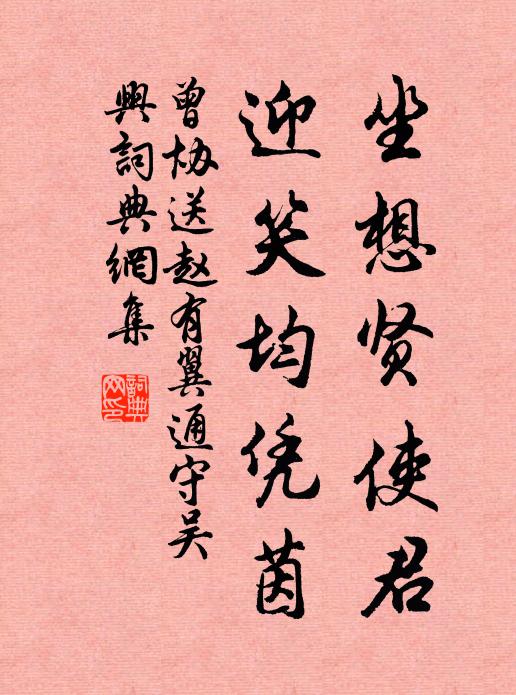 坐想贤使君
迎笑均凭茵
曾协送赵有翼通守吴
興詞典網集
詞典
网印